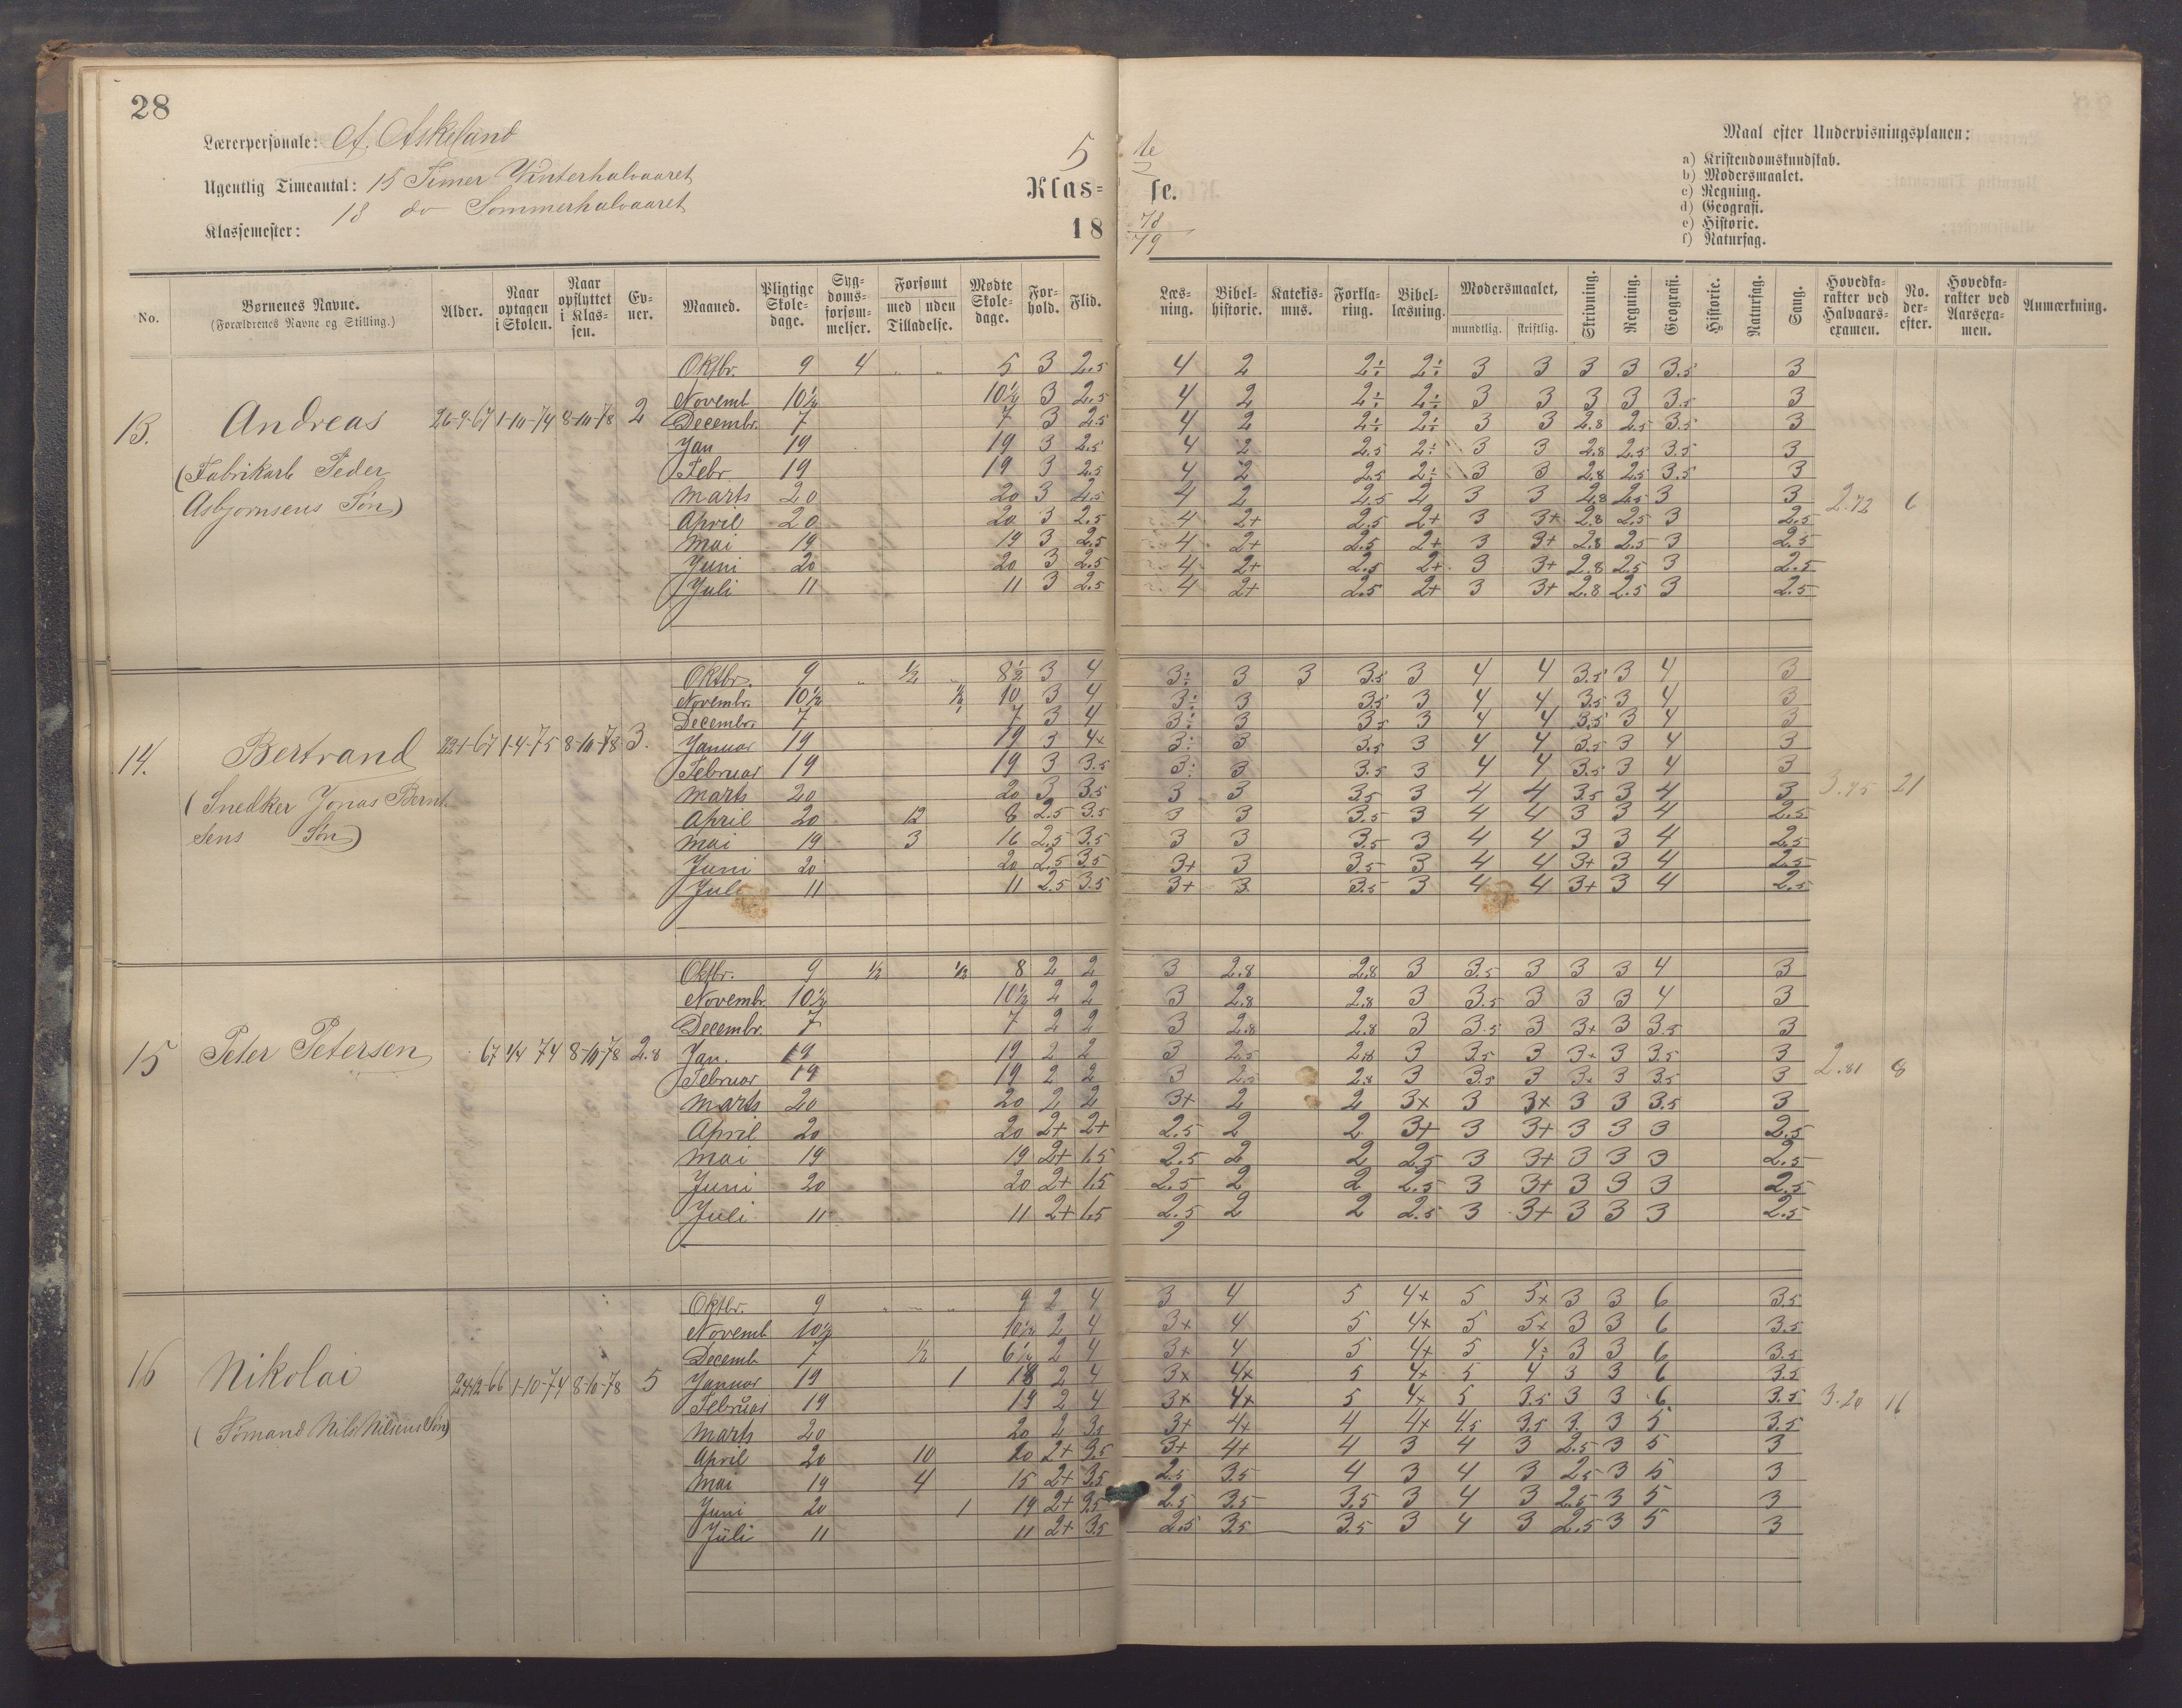 28
Lærerpersonale: A. Askeland
Ugentlig Timeantal: 15 Timer Vinterhalvaaret
18 do Sommerhalvaaret
Klassemester:
5 te
Klas= se.
18 78/79
Maal efter Undervisningsplanen:
a) Kristendomskundskab.
b) Modersmaalet.
c) Regning.
d) Geografi.
e) Historie.
f) Naturfag.
No. Børnenes Navne. (Forældrenes Navne og Stilling.) Alder. Naar optagen i Skolen. Naar opflyttet i Klassen. Evner. Maaned. Pligtige Skoledage. Sygdomsforsømmelser. Forsømt med uden Tilladelse. Mødte Skoledage. Forhold. Flid. Læsning. Bibelhistorie. Katekismus. Forklaring. Bibellæsning. Modersmaalet, mundtlig. skriftlig. Skrivning. Regning. Geografi. Historie. Naturfag. Sang. Hovedkarakter ved Halvaarsexamen. No. derefter. Hovedkarakter ved Aarsexamen. Anmærkning.
13. Andreas 26-9-67 1-10-74 8-10-78 2
(Fabrikarb Peder
Asbjørnsens Søn)
Oktbr. 9 4 " " 5 3 2.5 4 2 2÷ 2÷ 3 3 3 3 3.5 3
Novemb 10½ 10½ 3 2.5 4 2 2÷ 2÷ 3 3 3 3 3.5 3
Decembr. 7 7 3 2.5 4 2 2÷ 2÷ 3 3 2.8 2.5 3.5 3
Jan 19 19 3 2.5 4 2 2.5 2÷ 3 3 2.8 2.5 3.5 3
Febr 19 19 3 2.5 4 2 2.5 2÷ 3 3 2.8 2.5 3.5 3
Marts 20 20 3 2.5 4 2 2.5 2 3 3 2.8 2.5 3 3 2.72 6
April 20 20 3 2.5 4 2+ 2.5 2+ 3 3+ 2.8 2.5 3 2.5
Mai 19 19 3 2.5 4 2+ 2.5 2+ 3 3+ 2.8 2.5 3 2.5
Juni 20 20 3 2.5 4 2+ 2.5 2+ 3 3+ 2.8 2.5 3 2.5
Juli 11 11 3 2.5 4 2+ 2.5 2+ 3 3+ 2.8 2.5 3 2.5
14. Bertrand 1-4-75 8-10-78 3.
(Snedker Jonas Bernt
sens Søn)
Oktbr. 9 " ½ " 8½ 3 4 3÷ 3 3 3.5 3 4 4 3.5 3 4 3
Novembr. 10½ ½ 10 3 4 3÷ 3 3.5 3 4 4 3.5 3 4 3
Decembr. 7 7 3 4 3÷ 3 3.5 3 4 4 3.5 3 4 3
Januar 19 19 3 4x 3÷ 3 3.5 3 4 4 3.5 3 4 3
Februar 19 19 3 3.5 3÷ 3 3.5 3 4 4 3.5 3 4 3
Marts 20 20 3 3.5 3 3 3.5 3 4 4 3.5 3 4 3 21
April 20 12 8 2.5 3.5 3 3 3.5 3 4 4 3 3 4 2.5
Mai 19 3 16 2.5 3.5 3 3 3.5 3 4 4 3 3 4 2.5
Juni 20 20 2.5 3.5 3+ 3 3.5 3 4 4 3+ 3 4 2.5
Juli 11 11 2.5 3.5 3+ 3 3.5 3 4 4 3+ 3 4 2.5
15 Peter Petersen 67 1/4 74 8-10-78 2.8
Oktbr. 9 ½ ½ 8 2 2 3 2.8 2.8 3 3.5 3 3 3 4 3
Novembr. 10½ 10½ 2 2 3 2.8 2.8 3 3.5 3 3 3 4 3
Decembr. 7 7 2 2 3 2.8 2.8 3 3.5 3 3+ 3 3.5 3
Jan. 19 19 2 2 3 2.5 2.8 3 3.5 3 3+ 3 3.5 3 2.81 8
Februar 19 19 2 2 3 2.5 2.8 3 3.5 3 3+ 3 3.5 3
Marts 20 20 2 2 3+ 2 2 3x 3 3x 3 3 3.5 3
April 20 20 2+ 2+ 2.5 2 2 3+ 3 3+ 3 3 3 2.5
Mai 19 19 2+ 1.5 2.5 2 2 2.5 3 3+ 3 3 3 2.5
Juni 20 20 2+ 1.5 2.5 2 2 2.5 3 3+ 3 3 3 2.5
Juli 11 11 2+ 1.5 2.5 2 2 2.5 3 3+ 3 3 3 2.5
16 Nikolai 24-12-66 1-10-74 8-10-78 5
(Sømand Nils Nilsens Søn)
Oktbr. 9 " " " 9 2 4 3 4 5 4x 5 5x 3 3 6 3.5
Novemb 10½ 10½ 2 4 3x 4 5 4x 5 5x 3 3 6 3.5
Decemb 7 ½ 6½ 2 4 3+ 4 5 4+ 5 4÷ 3 3 6 3.5
Januar 19 1 18 2 4 3x 4x 5 4x 5 4 3 3 6 3.5
Februar 19 19 2 4 3x 4x 5 4x 5 3.5 3 3 6 3.5 3.20 16
Marts 20 20 2 3.5 3+ 4+ 4 4x 4.5 3.5 3 3 5 3.5
April 20 10 20 2+ 3.5 3+ 4+ 4 3 4 3 2.5 3 5 3
Mai 19 4 15 2+ 3.5 2.5 3.5 4 3 4 3 2.5 3 5 3
Juni 20 1 19 2+ 3.5 2.5 3.5 3.5 3 4 3 2.5 3 5 3
Juli 11 11 2+ 3.5 2.5 3.5 3.5 3 4 3 2.5 3 5 3